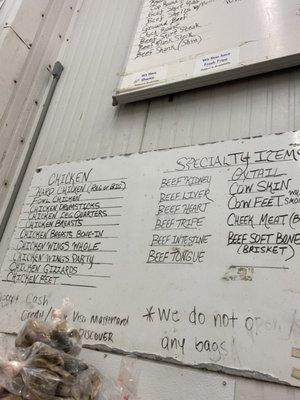 Ground Beef
Beef Flank Steak
Beef Shank (Shin)
We Now Have
We now have
Fresh Tripe
CHICKEN
HARD CHICKEN (REG OR BIG)
FOWL CHICKEN
CHICKEN DRUMSTICKS
CHICKEN LEG QUARTERS
CHICKEN BREASTS
CHICKEN BREASTS BONE-IN
CHICKEN WINGS WHOLE
CHICKEN WINGS PARTY
CHICKEN GIZZARDS
CHICKEN FEET
SPECIALTY ITEMS
BEEF KIDNEY
BEEF LIVER
BEEF HEART
BEEF TRIPE
BEEF INTESTINE
BEEF TONGUE
OXTAIL
COW SKIN
COW FEET
CHEEK MEAT
BEEF SOFT BONE
(BRISKET)
Cash
Credit/ Visa Mastercard
DISCOVER
*We do not open
any bags